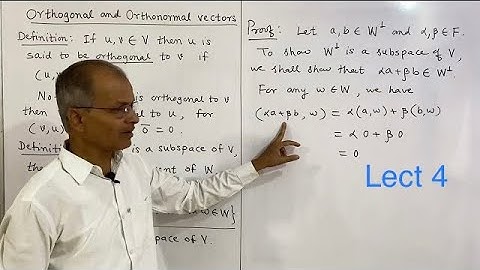 Orthogonal and Orthonormal vectors
Definition: If u, v ∈ V then u is
said to be orthogonal to v if
(u,
No is orthogonal to v
then u, for
(v, u) 0̄ = 0.
Defini is a subspace of V,
ent of W
w ∈ W}
space of V.
Proof: Let a, b ∈ W⊥ and α, β ∈ F.
To show W⊥ is a subspace of V,
we shall show that αa+βb ∈ W⊥.
For any w ∈ W, we have
(αa+βb, w) = α(a,w) + β(b,w)
= α 0 + β 0
= 0
Lect 4